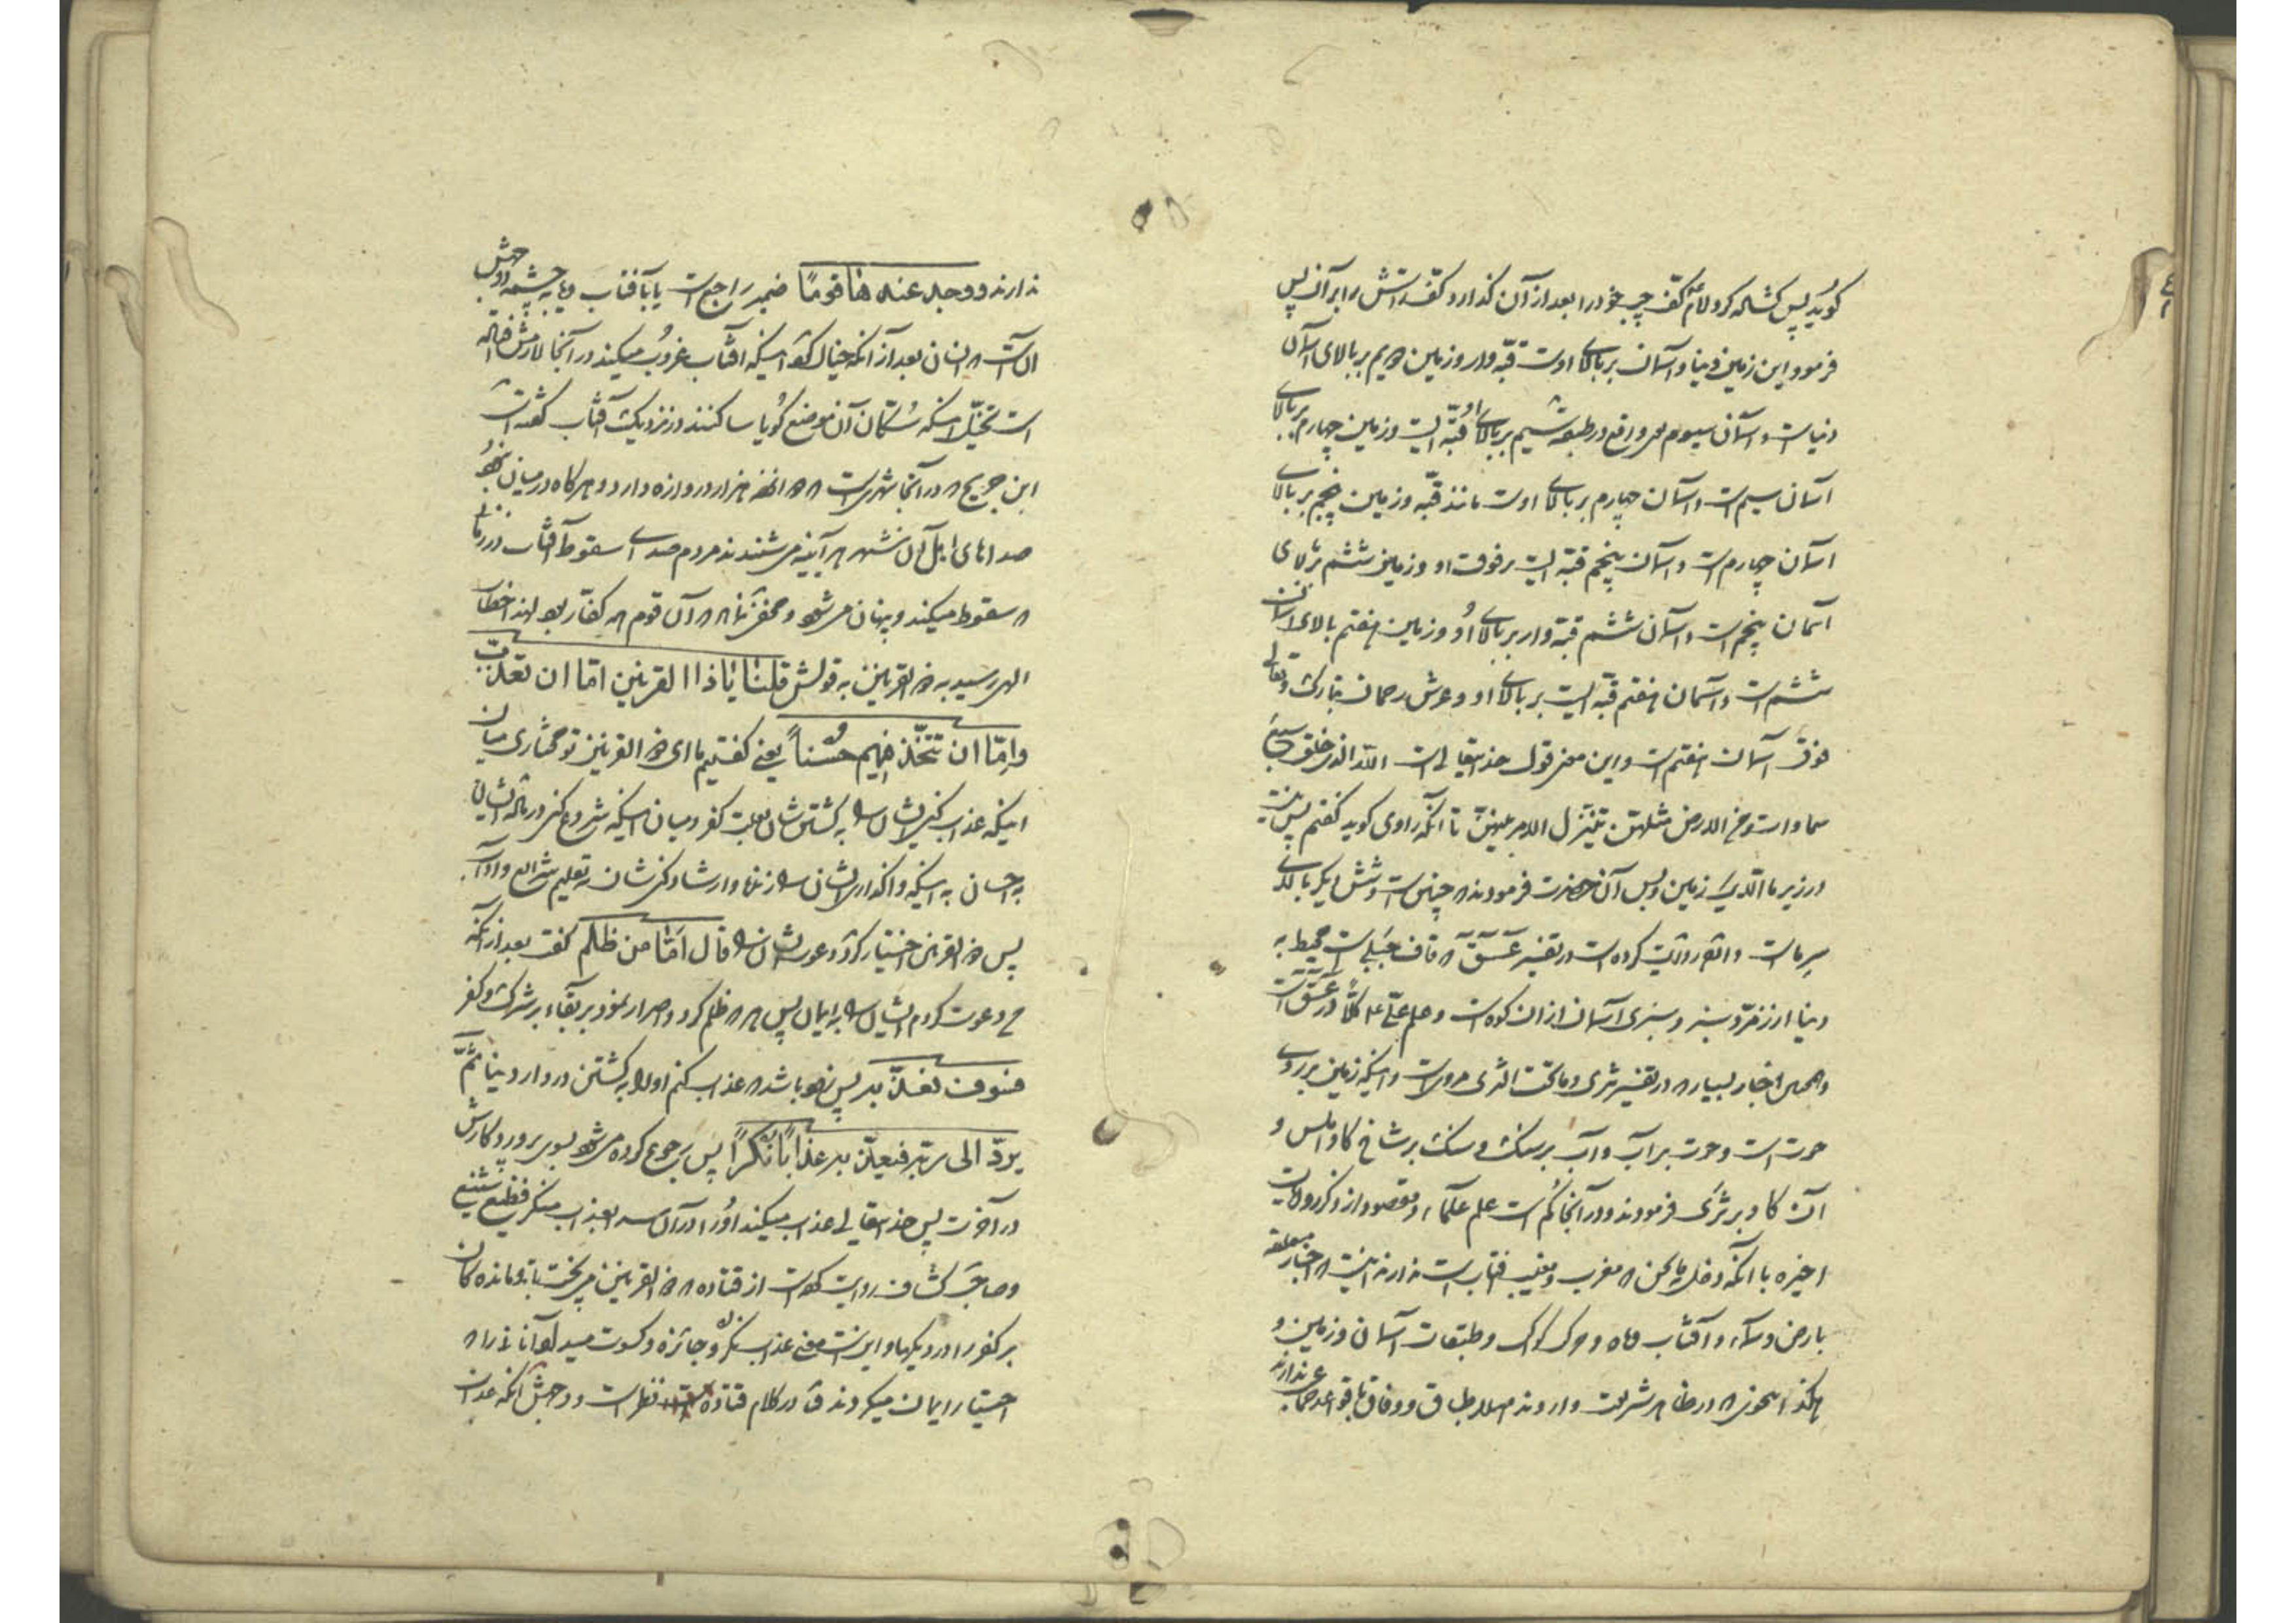 گوید پس گشاده کرد امام کف چپ خود را بعد از آن گذارد کف راستش را بر آن پس
فرمود این زمین دنیا و آسمان بر بالای اوست قبه وار و زمین دویم بر بالای آسمان
دنیاست و آسمان سیوم بر بالای او قبه ایست و زمین چهارم بر بالای
آسمان سیم است و آسمان چهارم بر بالای اوست مانند قبه و زمین پنجم بر بالای
آسمان چهارم است و آسمان پنجم قبه ایست بر فوق او و زمین ششم بر بالای
آسمان پنجم است و آسمان ششم قبه وار بر بالای او و زمین هفتم بالای آسمان
ششم است و آسمان هفتم قبه ایست بر بالای او و عرش رحمان تبارک و تعالی
فوق آسمان هفتم است و این معنی قول خدایتعالی است الله الذی خلق سبع
سماوات و من الارض مثلهن یتنزل الامر بینهن تا آنکه راوی گوید گفتم پس نیست
در زیر ما الا یک زمین و پس آن حضرت فرمودند که چنین است و شش دیگر بالای
سر ماست و روایت کرده است در تفسیر عسق که قاف جبلی است محیط به
دنیا از زمرد سبز و سبزی آسمان از آن کوه است و علم علی ع کلا در عسق است
اخبار بسیار که در تفسیر ثری و ما تحت الثری مرویست و اینکه زمین بر روی
حوت است و حوت بر آب و آب بر سنگ و سنگ بر شاخ گاو املس و
آن گاو بر ثری فرمودند و در آنجا گم است علم علماء و مقصود از ذکر روایت
اخیره با آنکه دخل بما نحن که مغرب و مغیب آفتاب است ندارند اینست که اخبار متعلقه
بارض و سماء و آفتاب و ماه و کواکب و طبقات آسمان و زمین و
هکذا بنحوی که در ظاهر شریعت وارد و وفاق با قواعد ندارند
ندارند و وجد عندها قوما ضمیر راجع است یا بآفتاب و یا به چشمه و وجهش
آنست که انسان بعد از آنکه خیال کند اینکه آفتاب غروب میکند در آنجا
است تخیل اینکه سکان آن موضع گویا ساکنند در نزدیک آفتاب گفته است
ابن جریح که در آنجا شهریست که هزار دروازه دارد و هرگاه در میان نبود
صداهای اهل آن شهر هر آینه می شنیدند مردم صدای سقوط آفتاب در زمانی
که سقوط میکند و پنهان می شود و مخفی نماناد که آن قوم کفار بود لهذا خطاب
الهی رسید به ذو القرنین به قولش قلنا یا ذا القرنین اما ان تعذب
و اما ان تتخذ فیهم حسنا یعنی گفتیم ما ای ذو القرنین تو مختاری میان
اینکه عذاب کنی ایشان را به کشتن شان بعلت کفر و میان اینکه شروع کنی درباره ایشان
به احسان به اینکه واگذاری ایشان را زنده و ارشاد کنی شان به تعلیم شرایع و آداب
پس ذو القرنین اختیار کرد دعوت ایشان را قال اما من ظلم گفت بعد از آنکه
من دعوت کردم ایشان را به ایمان پس هر که ظلم کرد و اصرار نمود بر بقاء بر شرک و کفر
فسوف نعذبه پس زود باشد که عذاب کنم او را به کشتن در دار دنیا ثم
یرد الی ربه فیعذبه عذابا نکرا پس رجوع کرده می شود بسوی پروردگارش
در آخرت پس خدایتعالی عذاب میکند او را در آن سرا بعذاب منکر فظیع شنیع
و صاحب کشاف روایت کرده است از قتاده که ذو القرنین می پخت باقی مانده گان
بر کفر را در دیکها و اینست معنی عذاب نکر و جائزه و کسوت میداد آنانی را که
اختیار ایمان میکردند در کلام قتاده نظر است و وجهش آنکه عذاب